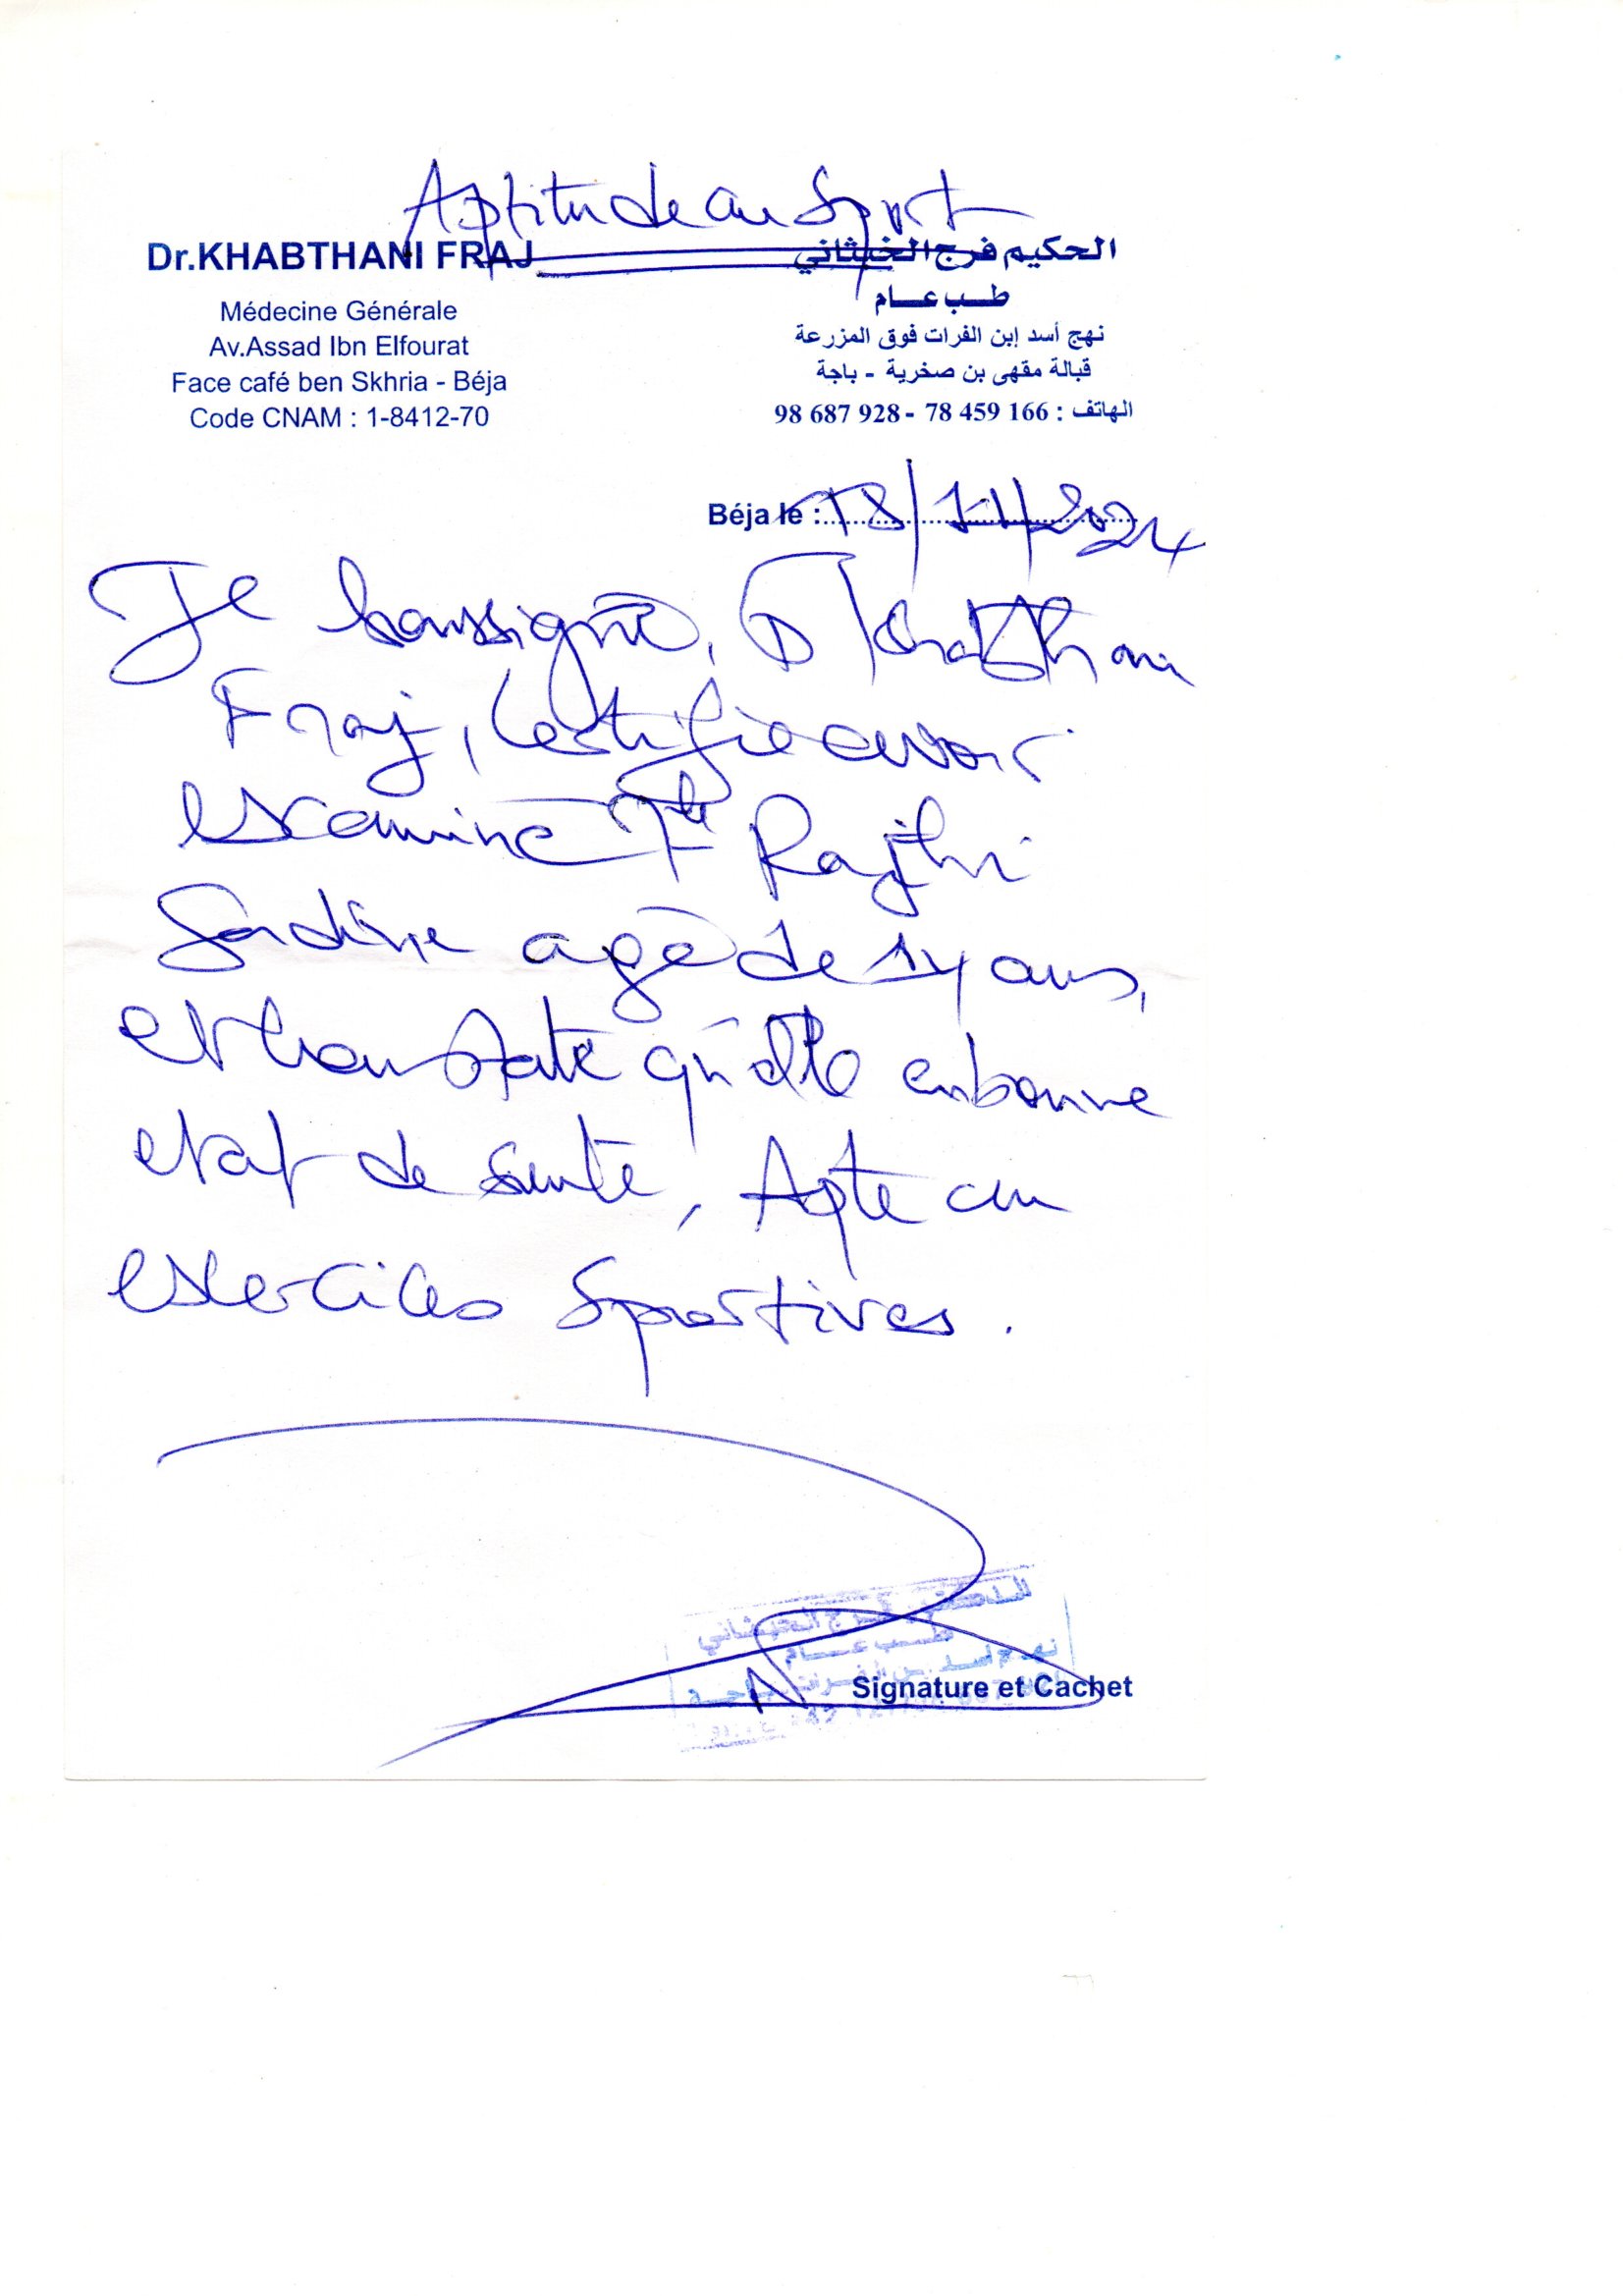 Aptitude au Sport
Dr.KHABTHANI FRAJ
Médecine Générale
Av.Assad Ibn Elfourat
Face café ben Skhria - Béja
Code CNAM : 1-8412-70
الحكيم فرج الخبثاني
طب عام
نهج أسد إبن الفرات فوق المزرعة
قبالة مقهى بن صخرية - باجة
الهاتف : 166 459 78 - 928 687 98
Béja le : 18/11/2024
Je soussigné, Dr Khabthani
Fraj, certifie avoir
examiné Flle Rajhi
agé de 14 ans,
et constate qu'elle en bonne
etat de santé, Apte au
exercices sportives.
الدكتور فرج الخبثاني
طب عام
نهج أسد بن الفرات باجة
Signature et Cachet